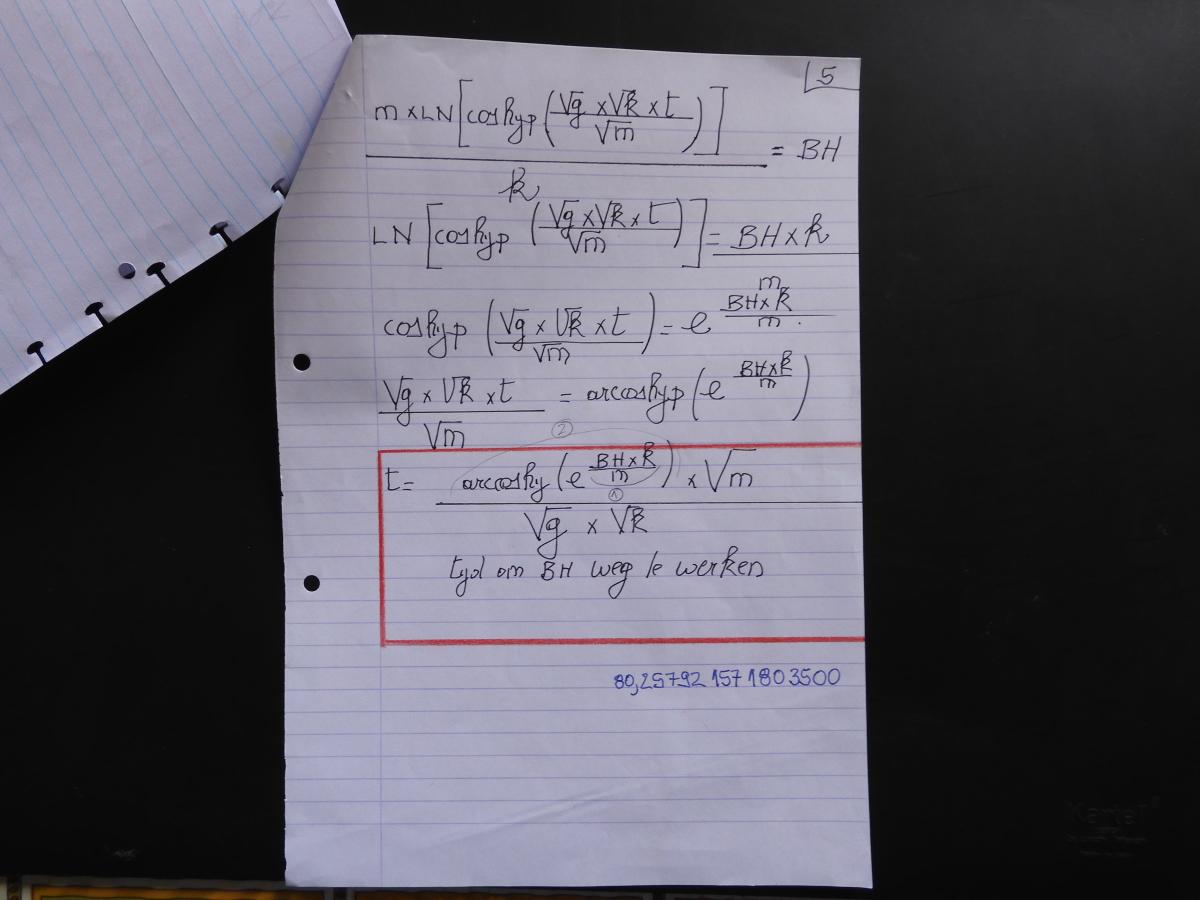 5
m × LN [coshyp (√g × √k × t / √m)] / k = BH
LN [coshyp (√g × √k × t / √m)] = BH × k / m
coshyp (√g × √k × t / √m) = e^(BH × k / m)
√g × √k × t / √m = arcoshyp (e^(BH × k / m))
②
t = arccoshy (e^(BH × k / m)) × √m / √g × √k
①
tijd om BH weg te werken
80,25792 157 180 3500